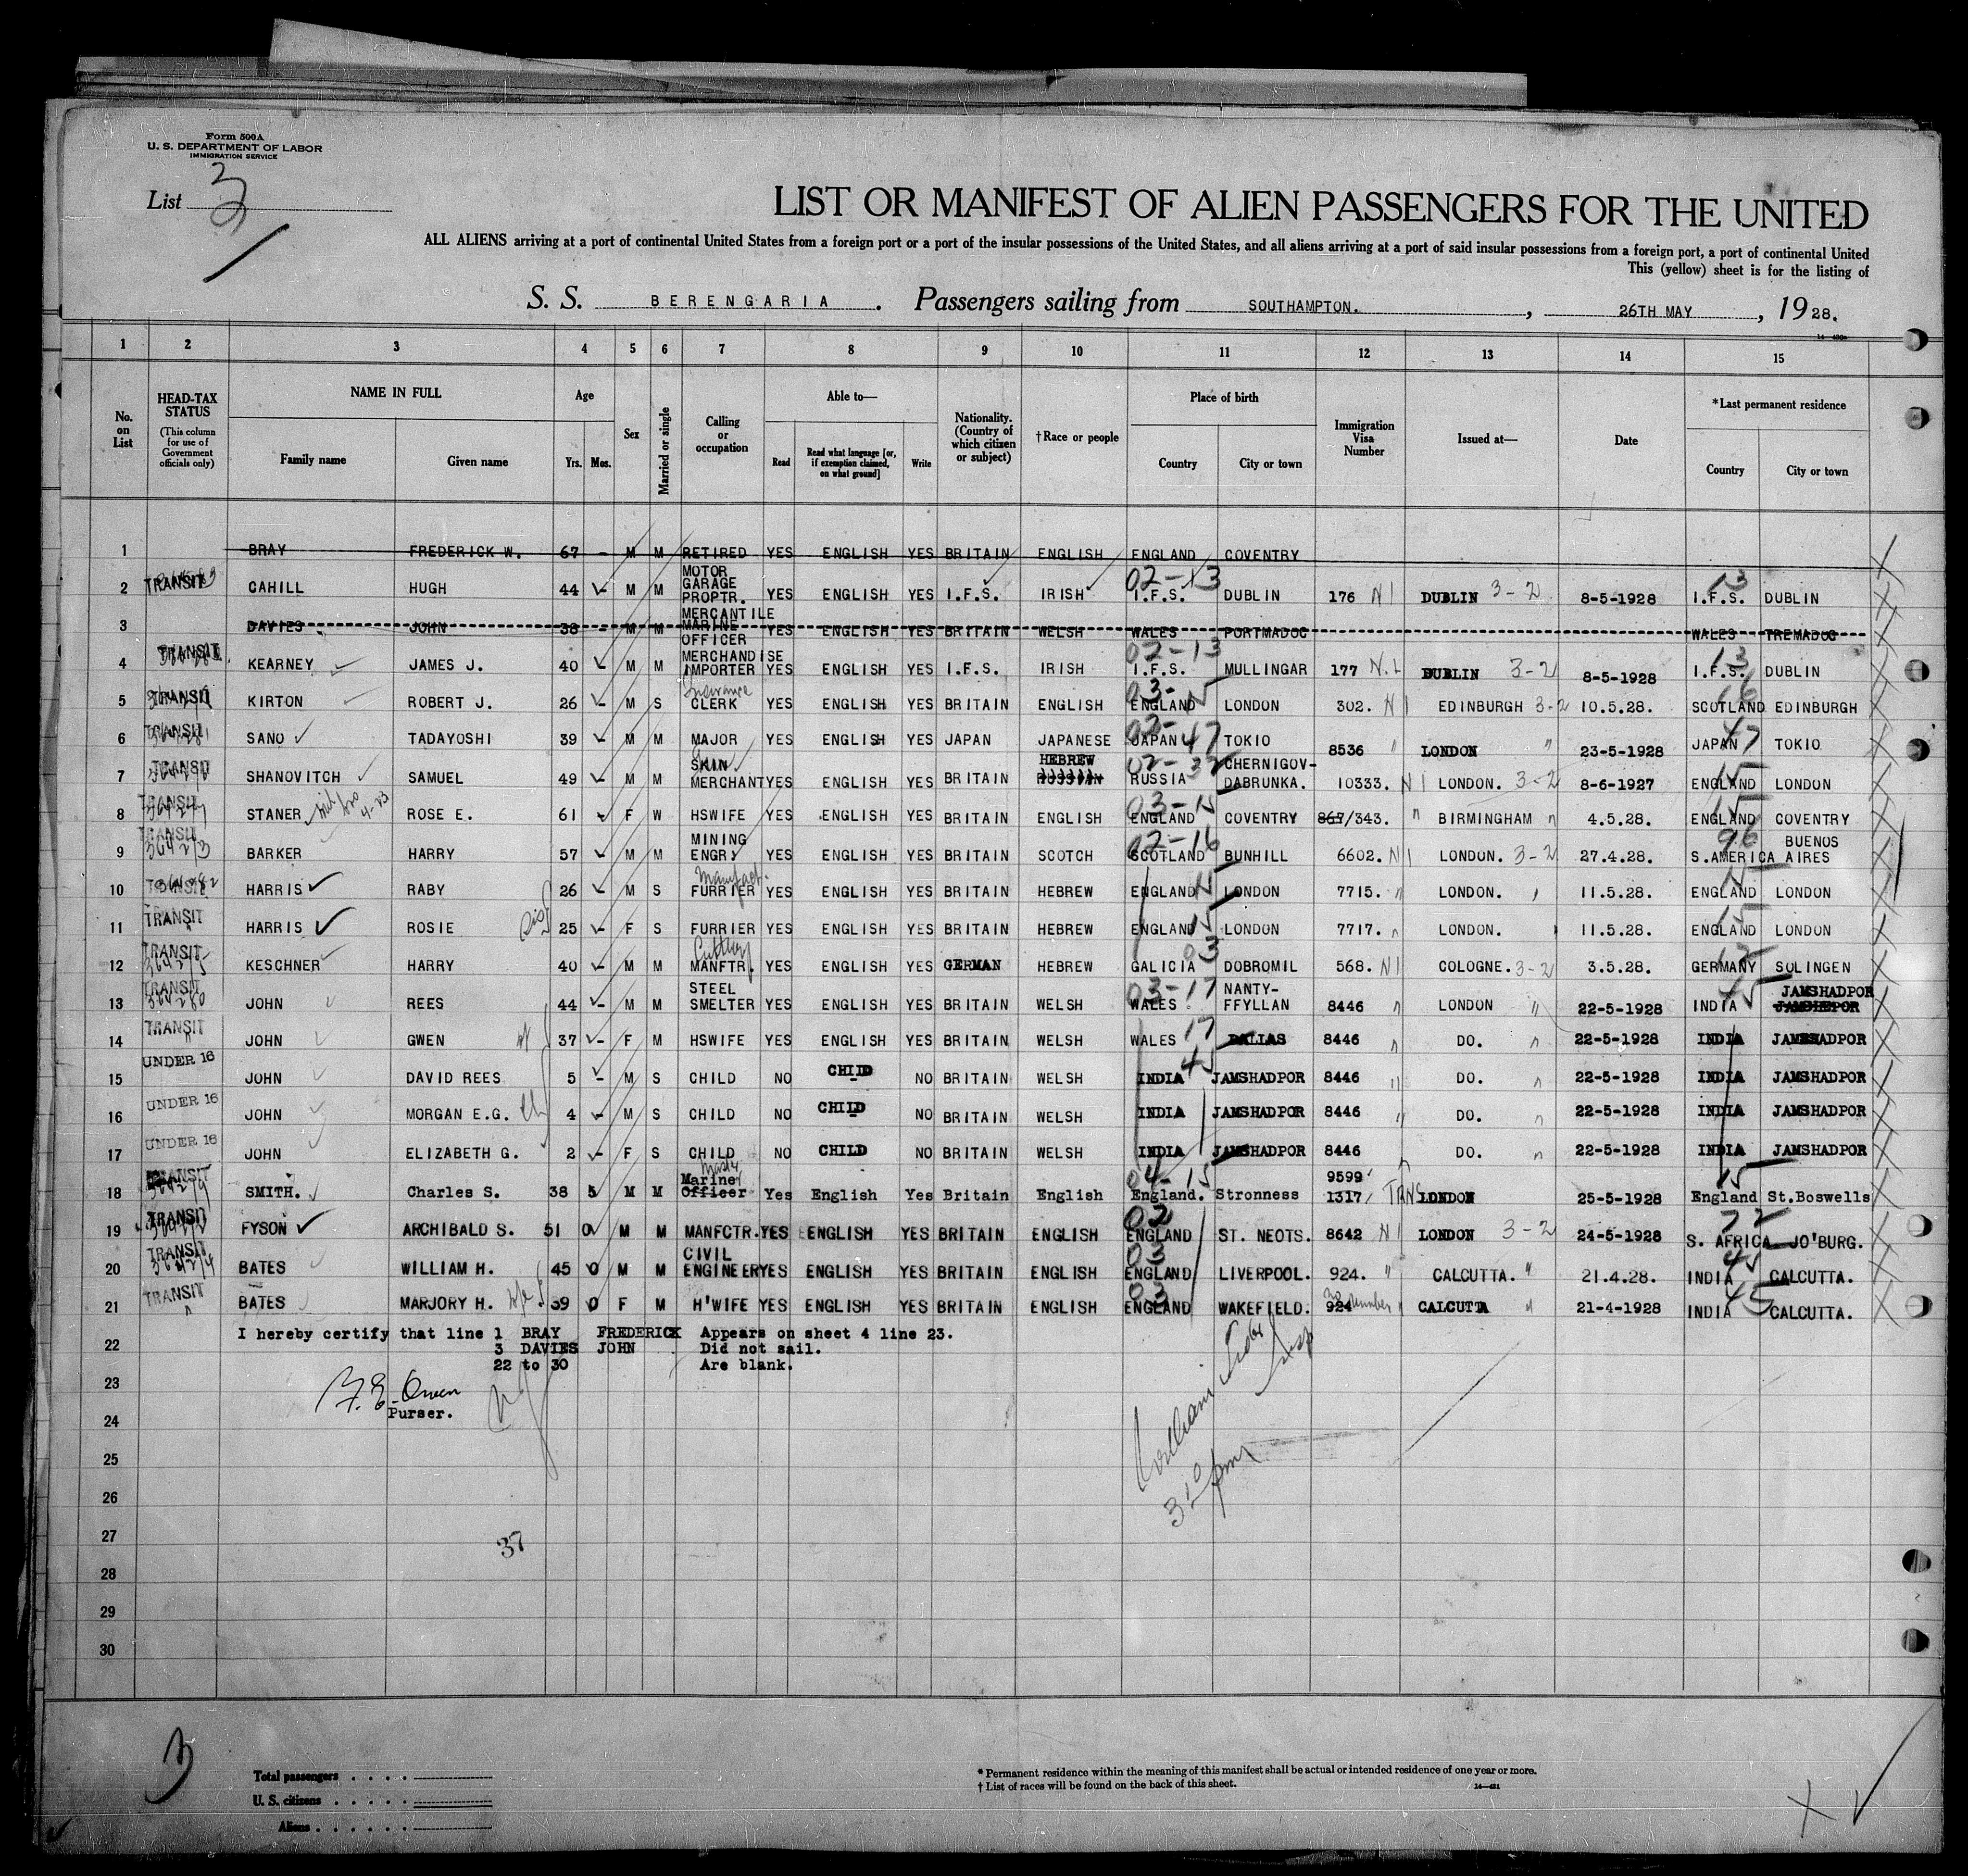 Form 500A
U. S. DEPARTMENT OF LABOR
IMMIGRATION SERVICE
List 3
LIST OR MANIFEST OF ALIEN PASSENGERS FOR THE UNITED
ALL ALIENS arriving at a port of continental United States from a foreign port or a port of the insular possessions of the United States, and all aliens arriving at a port of said insular possessions from a foreign port, a port of continental United
This (yellow) sheet is for the listing of
S. S. BERENGARIA. Passengers sailing from SOUTHAMPTON. , 26TH MAY , 1928.
1 2 3 4 5 6 7 8 9 10 11 12 13 14 15
No. on List
HEAD-TAX STATUS (This column for use of Government officials only)
NAME IN FULL
Family name Given name
Age
Yrs. Mos.
Sex
Married or single
Calling or occupation
Able to—
Read Read what language [or, if exemption claimed, on what ground] Write
Nationality. (Country of which citizen or subject)
†Race or people
Place of birth
Country City or town
Immigration Visa Number
Issued at—
Date
*Last permanent residence
Country City or town
1 BRAY FREDERICK W. 67 - M M RETIRED YES ENGLISH YES BRITAIN ENGLISH ENGLAND COVENTRY
2 TRANSIT CAHILL HUGH 44 - M M MOTOR GARAGE PROPTR. YES ENGLISH YES I.F.S. IRISH 02-13 I.F.S. DUBLIN 176 NI DUBLIN 3-2 8-5-1928 13 I.F.S. DUBLIN
3 DAVIES JOHN 38 - M M MERCANTILE MARINE OFFICER YES ENGLISH YES BRITAIN WELSH WALES PORTMADOC WALES TREMADOC
4 TRANSIT KEARNEY JAMES J. 40 - M M MERCHANDISE IMPORTER YES ENGLISH YES I.F.S. IRISH 02-13 I.F.S. MULLINGAR 177 N.I DUBLIN 3-2 8-5-1928 13 I.F.S. DUBLIN
5 TRANSIT KIRTON ROBERT J. 26 - M S Insurance CLERK YES ENGLISH YES BRITAIN ENGLISH 03-15 ENGLAND LONDON 302. NI EDINBURGH 3-2 10.5.28. 16 SCOTLAND EDINBURGH
6 TRANSIT SANO TADAYOSHI 39 - M M MAJOR YES ENGLISH YES JAPAN JAPANESE 03-47 JAPAN TOKIO 8536 " LONDON " 23-5-1928 47 JAPAN TOKIO
7 TRANSIT SHANOVITCH SAMUEL 49 - M M SKIN MERCHANT YES ENGLISH YES BRITAIN HEBREW RUSSIAN 02-32 RUSSIA CHERNIGOV-DABRUNKA. 10333. NI LONDON. 3-2 8-6-1927 15 ENGLAND LONDON
8 TRANSIT STANER ROSE E. 61 - F W HSWIFE YES ENGLISH YES BRITAIN ENGLISH 03-15 ENGLAND COVENTRY 867/343. " BIRMINGHAM " 4.5.28. 15 ENGLAND COVENTRY
9 TRANSIT BARKER HARRY 57 - M M MINING ENGR. YES ENGLISH YES BRITAIN SCOTCH 02-16 SCOTLAND BUNHILL 6602. NI LONDON. 3-2 27.4.28. 96 S.AMERICA BUENOS AIRES
10 TRANSIT HARRIS RABY 26 - M S Manfact. FURRIER YES ENGLISH YES BRITAIN HEBREW ENGLAND 15 LONDON 7715. " LONDON. " 11.5.28. 15 ENGLAND LONDON
11 TRANSIT HARRIS ROSIE Sis 25 - F S FURRIER YES ENGLISH YES BRITAIN HEBREW ENGLAND 15 LONDON 7717. " LONDON. " 11.5.28. 15 ENGLAND LONDON
12 TRANSIT KESCHNER HARRY 40 - M M Cutlery MANFTR. YES ENGLISH YES GERMAN HEBREW 03 GALICIA DOBROMIL 568. NI COLOGNE. 3-2 3.5.28. 12 GERMANY SOLINGEN
13 TRANSIT JOHN REES 44 - M M STEEL SMELTER YES ENGLISH YES BRITAIN WELSH 03-17 WALES NANTY-FFYLLAN 8446 " LONDON " 22-5-1928 45 INDIA JAMSHADPOR
14 TRANSIT JOHN GWEN wf 37 - F M HSWIFE YES ENGLISH YES BRITAIN WELSH WALES 17 DALLAS 8446 " DO. " 22-5-1928 INDIA JAMSHADPOR
15 UNDER 16 JOHN DAVID REES 5 - M S CHILD NO CHILD NO BRITAIN WELSH INDIA 45 JAMSHADPOR 8446 " DO. " 22-5-1928 INDIA JAMSHADPOR
16 UNDER 16 JOHN MORGAN E.G. ch 4 - M S CHILD NO CHILD NO BRITAIN WELSH INDIA JAMSHADPOR 8446 " DO. " 22-5-1928 INDIA JAMSHADPOR
17 UNDER 16 JOHN ELIZABETH G. 2 - F S CHILD NO CHILD NO BRITAIN WELSH INDIA JAMSHADPOR 8446 DO. " 22-5-1928 INDIA JAMSHADPOR
18 TRANSIT SMITH. Charles S. 38 5 M M Master Marine Officer Yes English Yes Britain English 04-15 England. Stronness 9599 1317/ TRANS LONDON 25-5-1928 15 England St.Boswells
19 TRANSIT FYSON ARCHIBALD S. 51 0 M M MANFCTR. YES ENGLISH YES BRITAIN ENGLISH 02 ENGLAND ST. NEOTS. 8642 NI LONDON 3-2 24-5-1928 72 S. AFRICA JO'BURG.
20 TRANSIT BATES WILLIAM H. 45 0 M M CIVIL ENGINEER YES ENGLISH YES BRITAIN ENGLISH 03 ENGLAND LIVERPOOL. 924. " CALCUTTA. " 21.4.28. 45 INDIA CALCUTTA.
21 TRANSIT " BATES MARJORY H. wfe 39 0 F M H'WIFE YES ENGLISH YES BRITAIN ENGLISH 03 ENGLAND WAKEFIELD. 924 no number CALCUTTA " 21-4-1928 INDIA 45 CALCUTTA.
I hereby certify that line 1 BRAY FREDERICK Appears on sheet 4 line 23.
22 3 DAVIES JOHN Did not sail.
22 to 30 Are blank.
23 F. E. Owen
24 Purser.
25
26
27
37
28
29
30
William
Insp
3 10 pm
3
Total passengers . . . .
U. S. citizens . . . . .
Aliens . . . . . .
* Permanent residence within the meaning of this manifest shall be actual or intended residence of one year or more.
† List of races will be found on the back of this sheet.